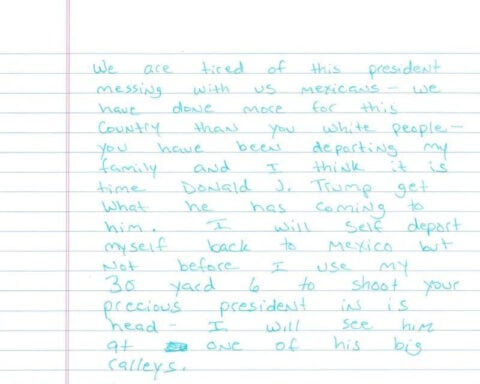 We are tired of this president
messing with us mexicans - we
have done more for this
Country than you white people -
you have been deporting my
family and I think it is
time Donald J. Trump get
What he has coming to
him. I will self deport
myself back to Mexico but
Not before I use my
30 yard 6 to shoot your
precious president in is
head - I will see him
at one of his big
ralleys.